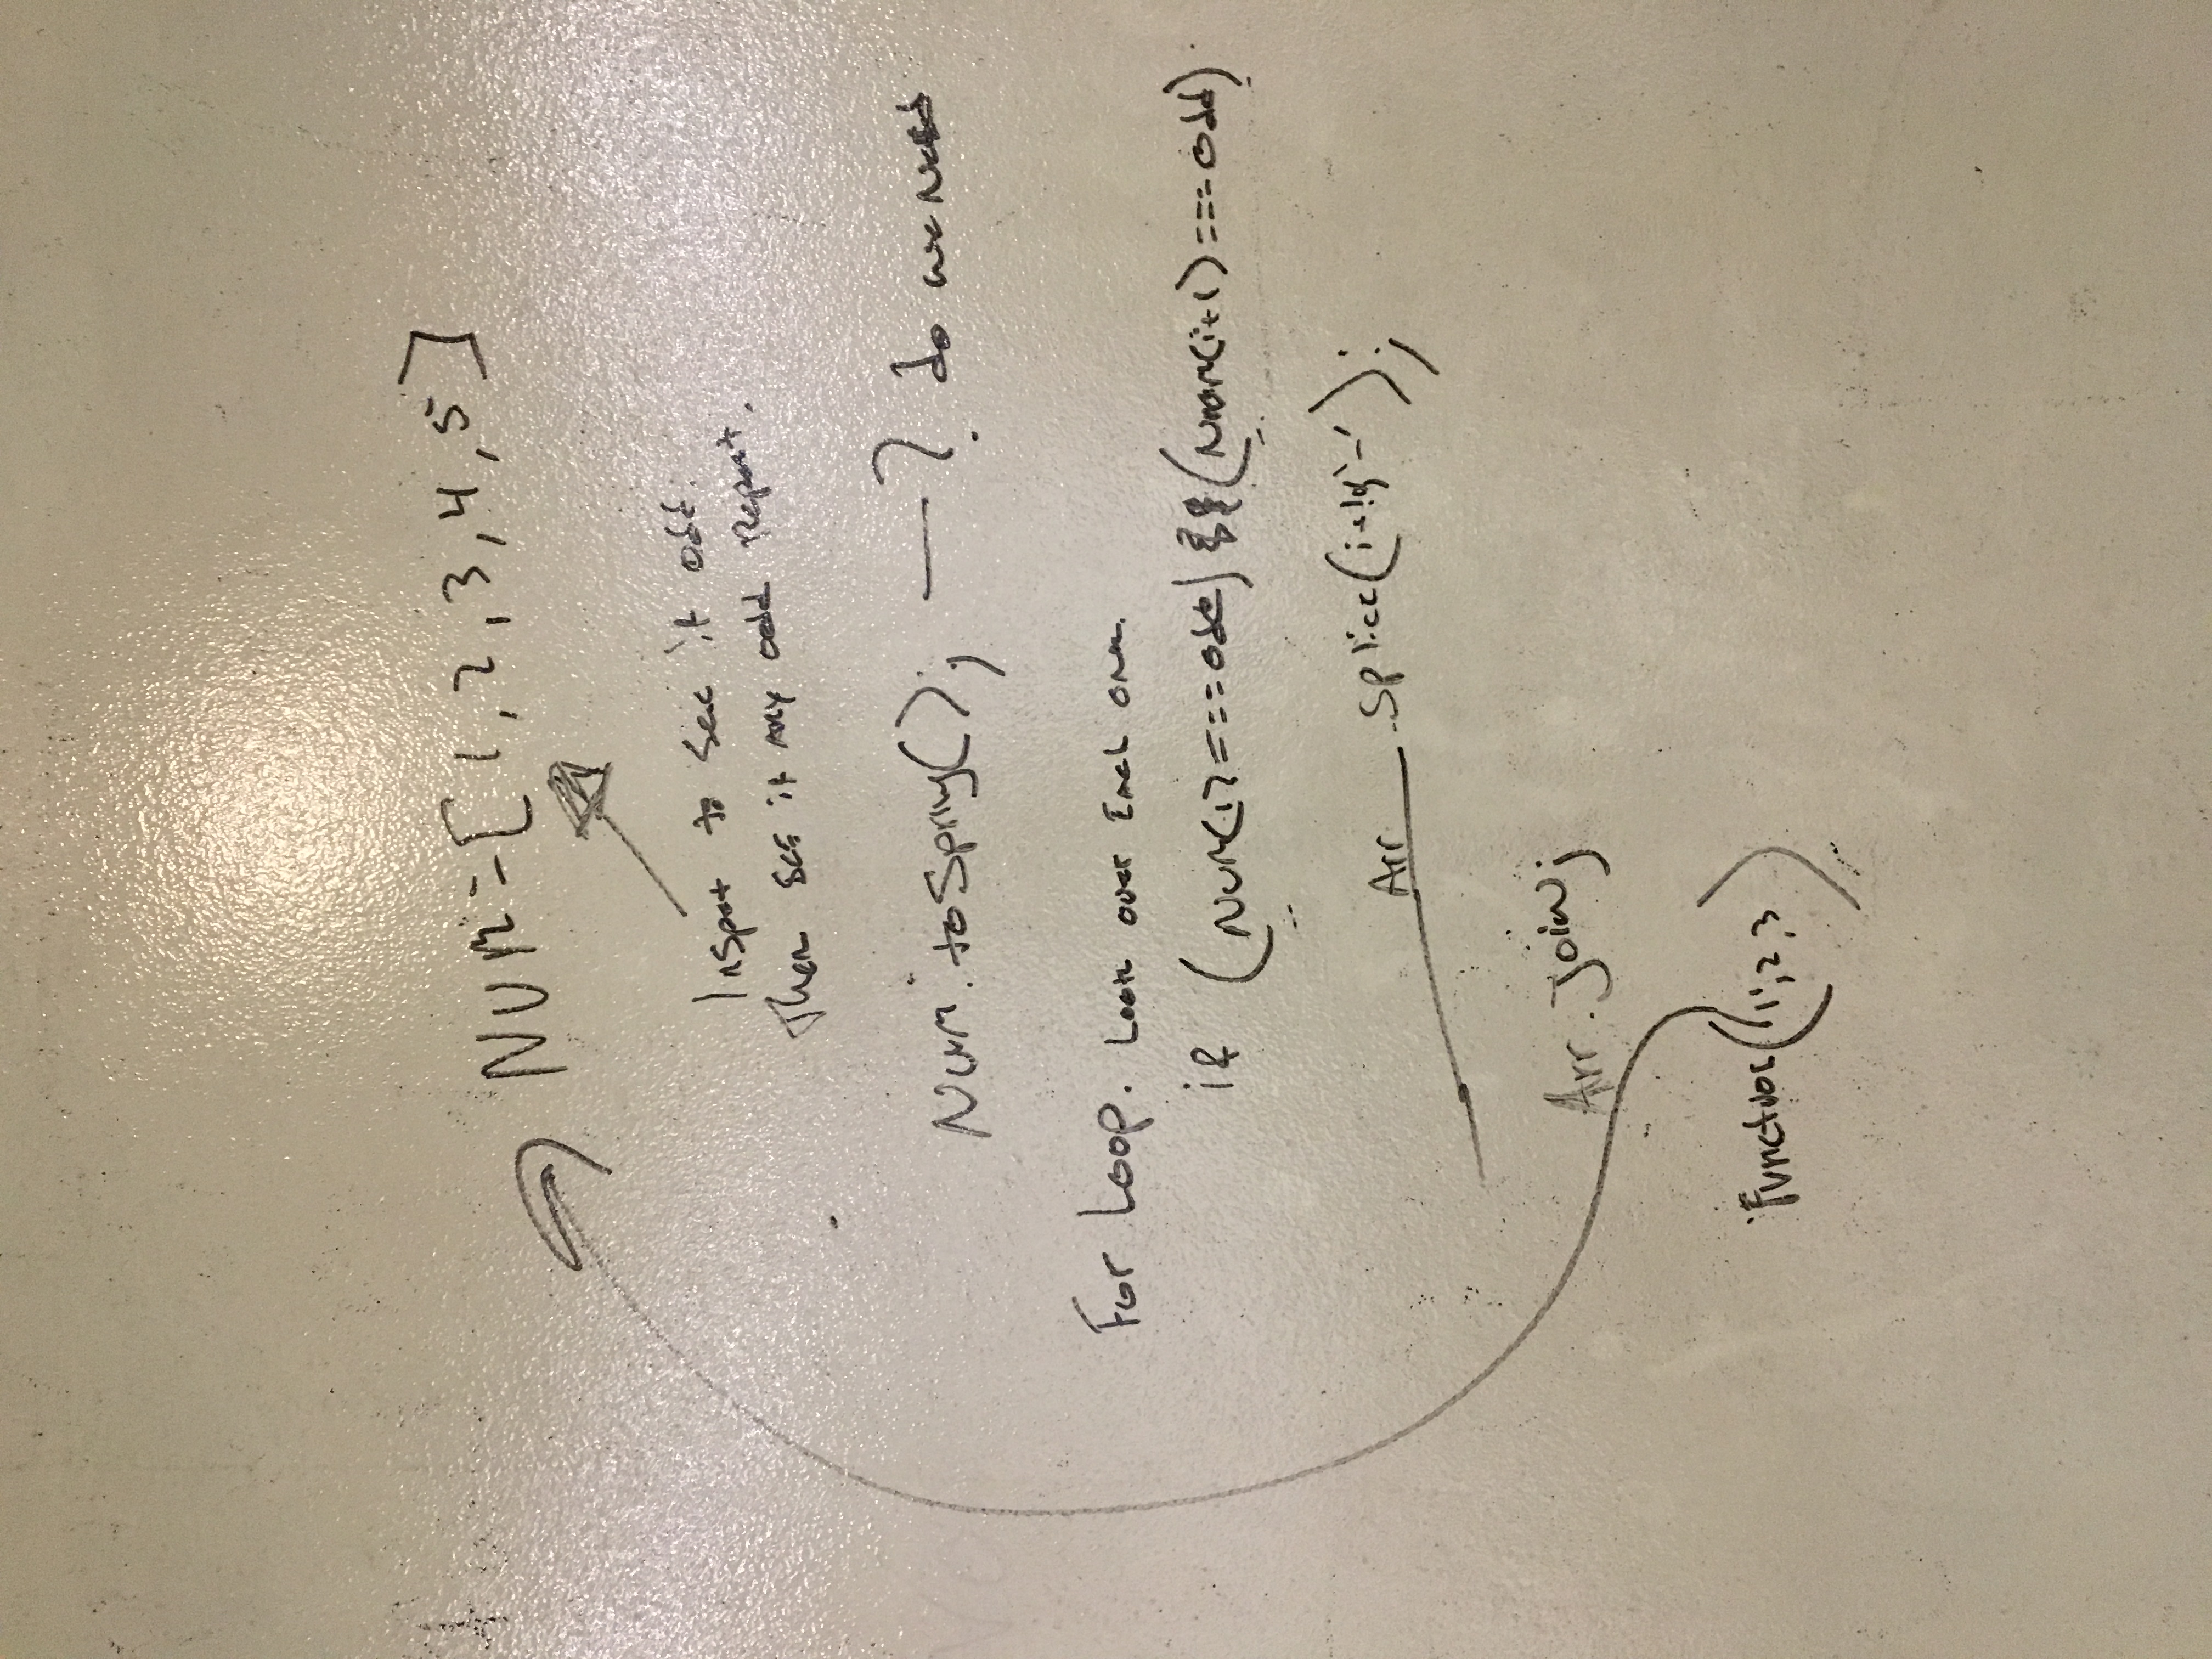 NUM=[1,2,3,4,5]
Inspet to see if odd.
Then see if any odd Repeat.
Num.toSpring(); —? do we need
For Loop. Look over Each one.
if (Num(i)===odd) && (Num(i+1)===odd)
Arr .Splice(i+1,0,'-');
Arr.Join;
Function(1,2,3)